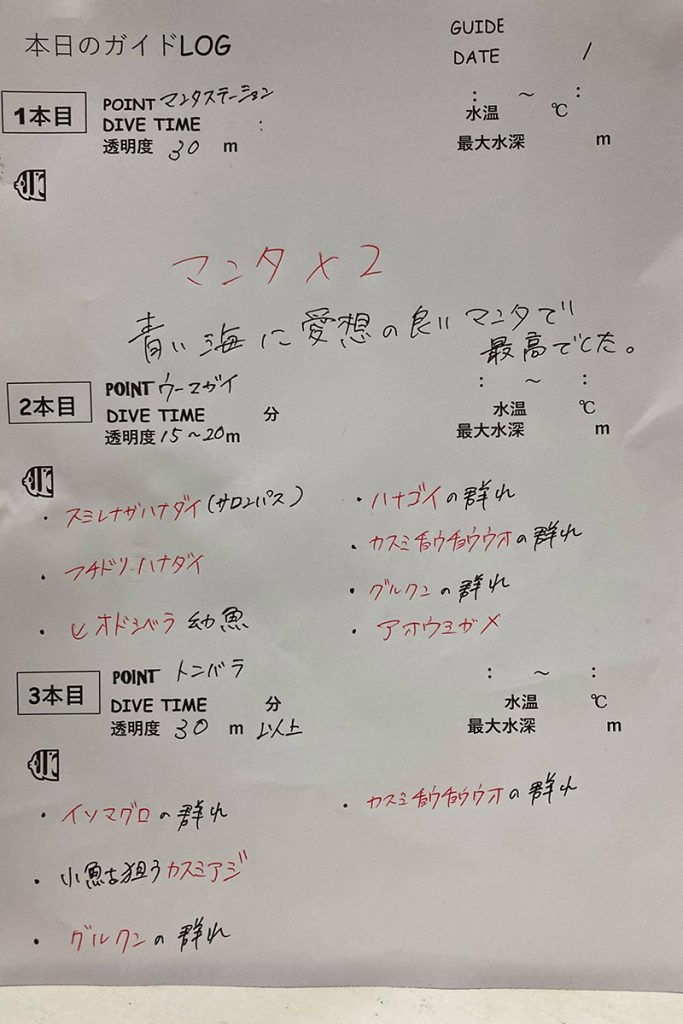 本日のガイドLOG
GUIDE
DATE /
1本目
POINT マンタステーション
DIVE TIME :
透明度 30 m
: ～ :
水温 ℃
最大水深 m
マンタ×2
青い海に愛想の良いマンタで
最高でした。
2本目
POINT ウーマガイ
DIVE TIME 分
透明度 15～20m
: ～ :
水温 ℃
最大水深 m
・スミレナガハナダイ(サロンパス)
・フチドリハナダイ
・ヒオドシベラ 幼魚
・ハナゴイの群れ
・カスミチョウチョウウオの群れ
・グルクンの群れ
・アオウミガメ
3本目
POINT トンバラ
DIVE TIME 分
透明度 30 m 以上
: ～ :
水温 ℃
最大水深 m
・イソマグロの群れ
・小魚を狙うカスミアジ
・グルクンの群れ
・カスミチョウチョウウオの群れ